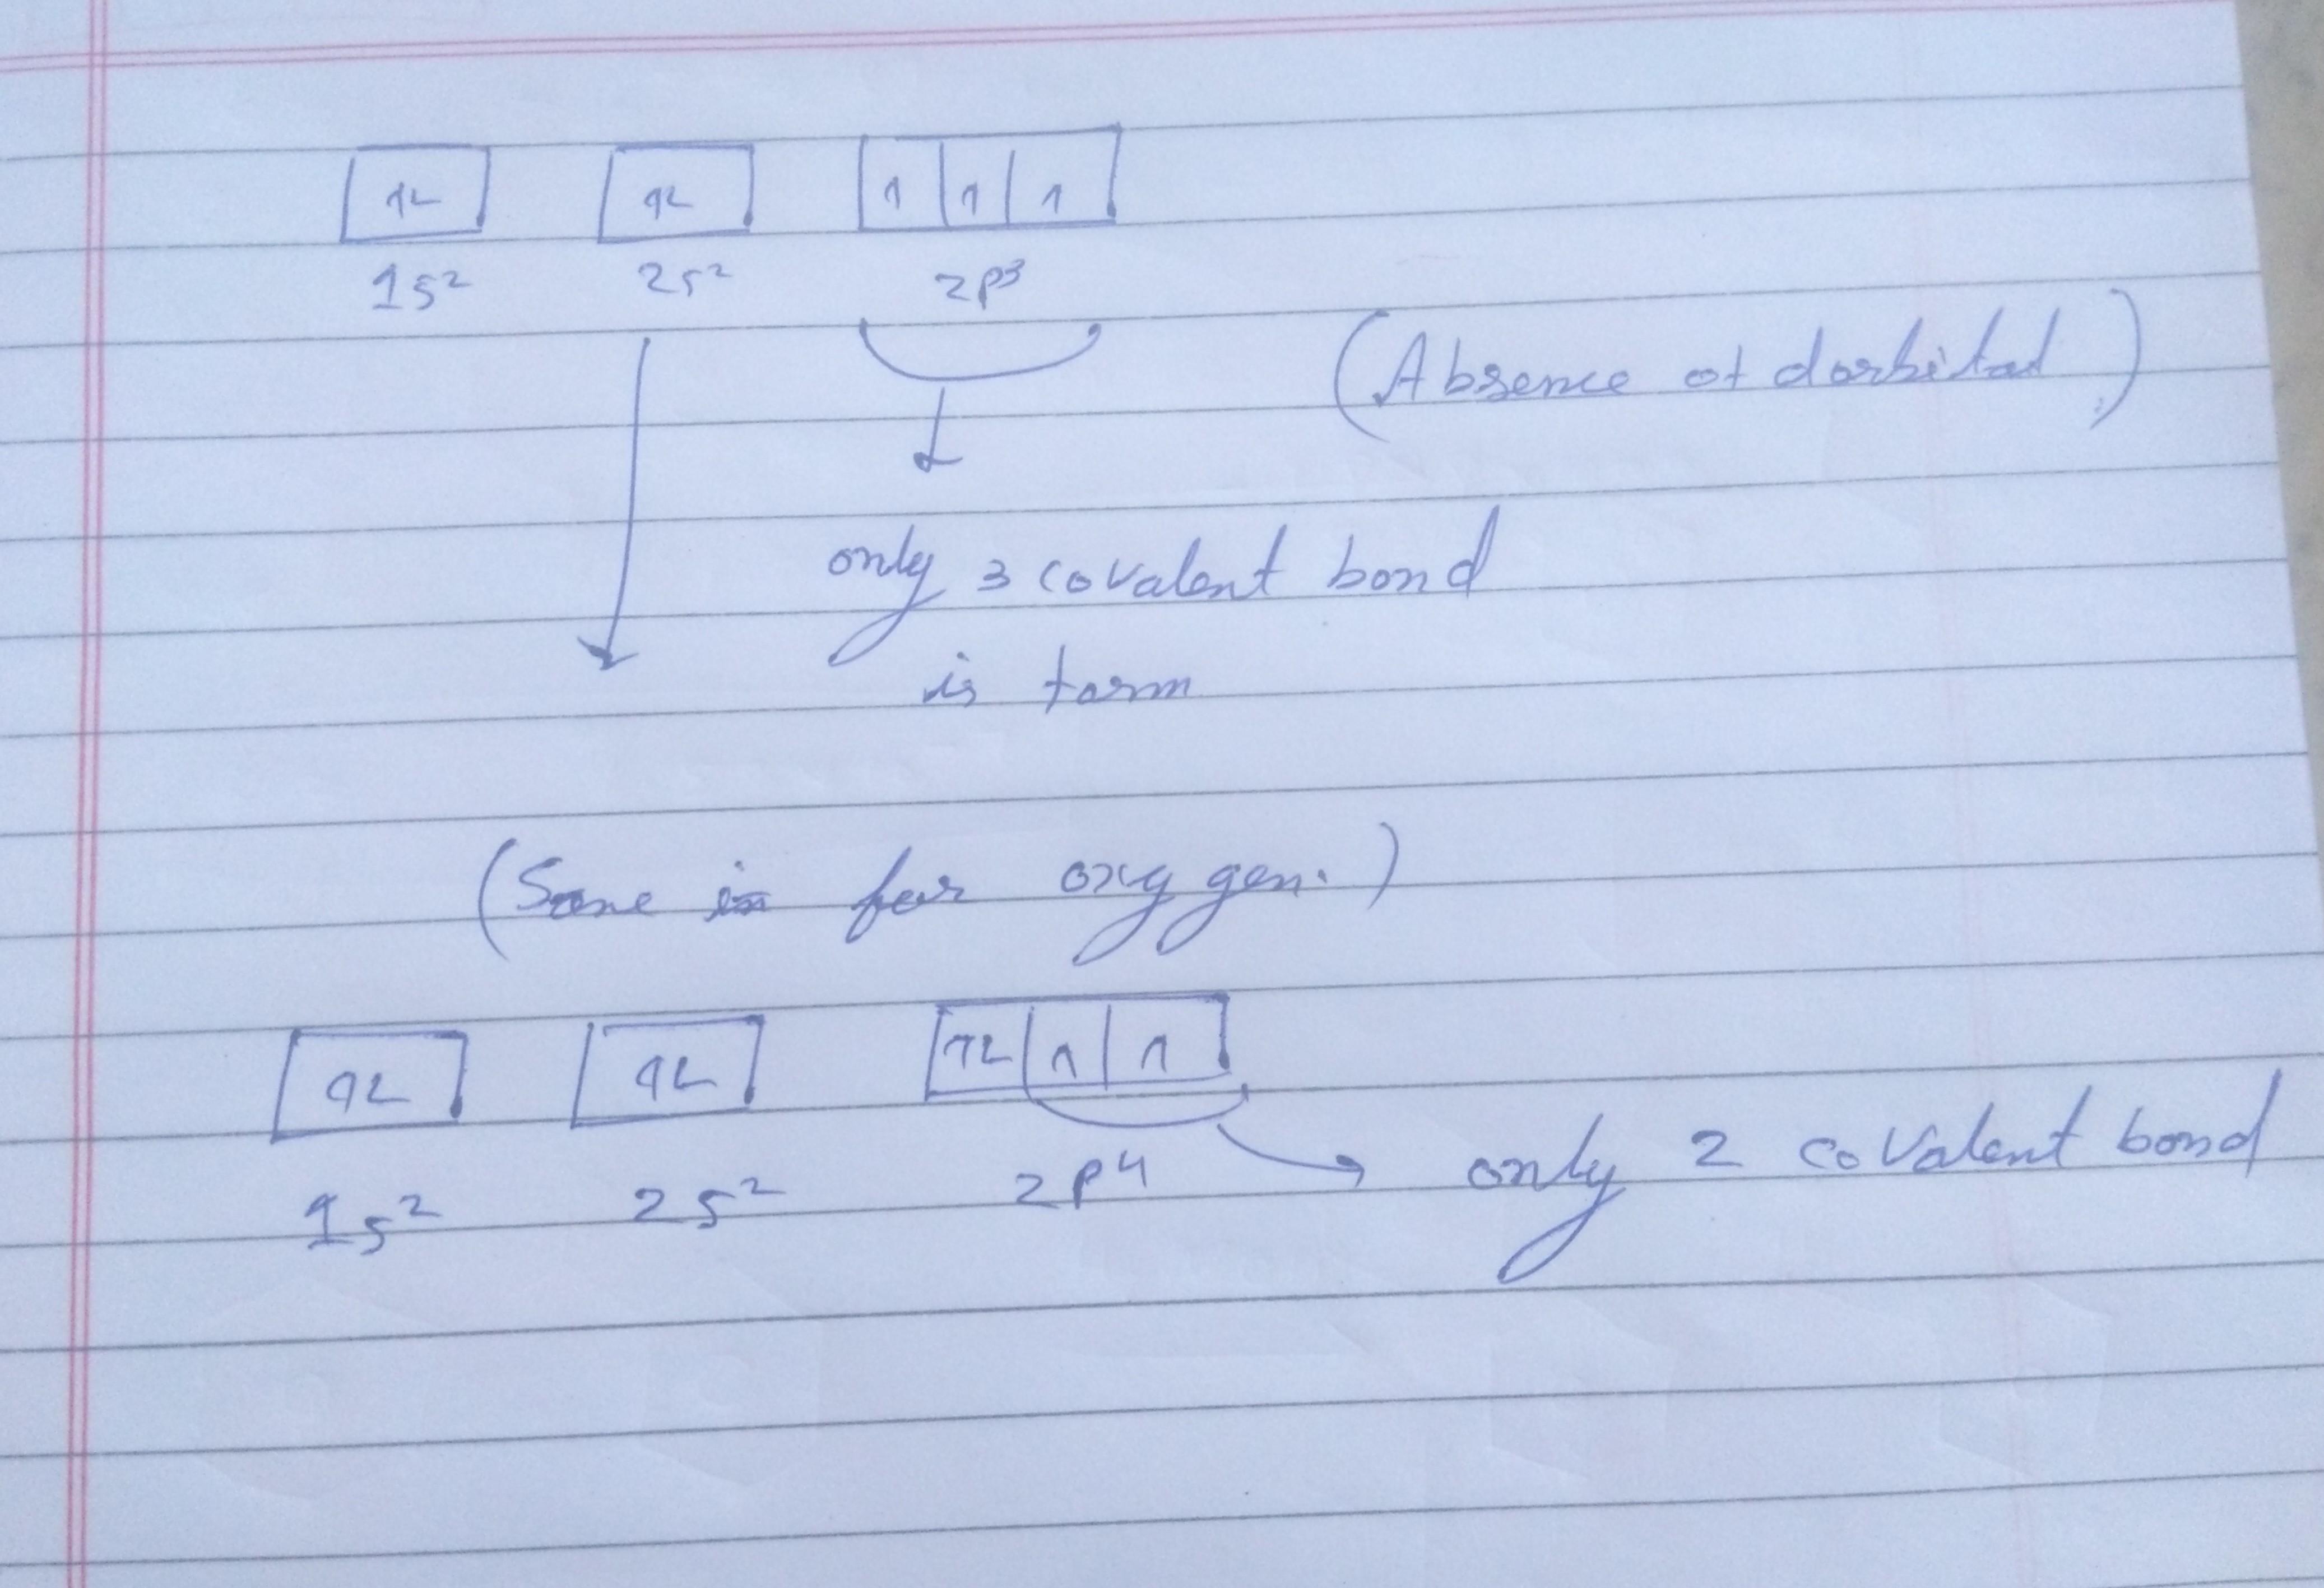 1L 1L 1 1 1
1s² 2s² 2p³
(Absence of d orbital)
only 3 covalent bond
is form
(Same is for oxygen.)
1L 1L 1L 1 1
1s² 2s² 2p⁴
only 2 covalent bond